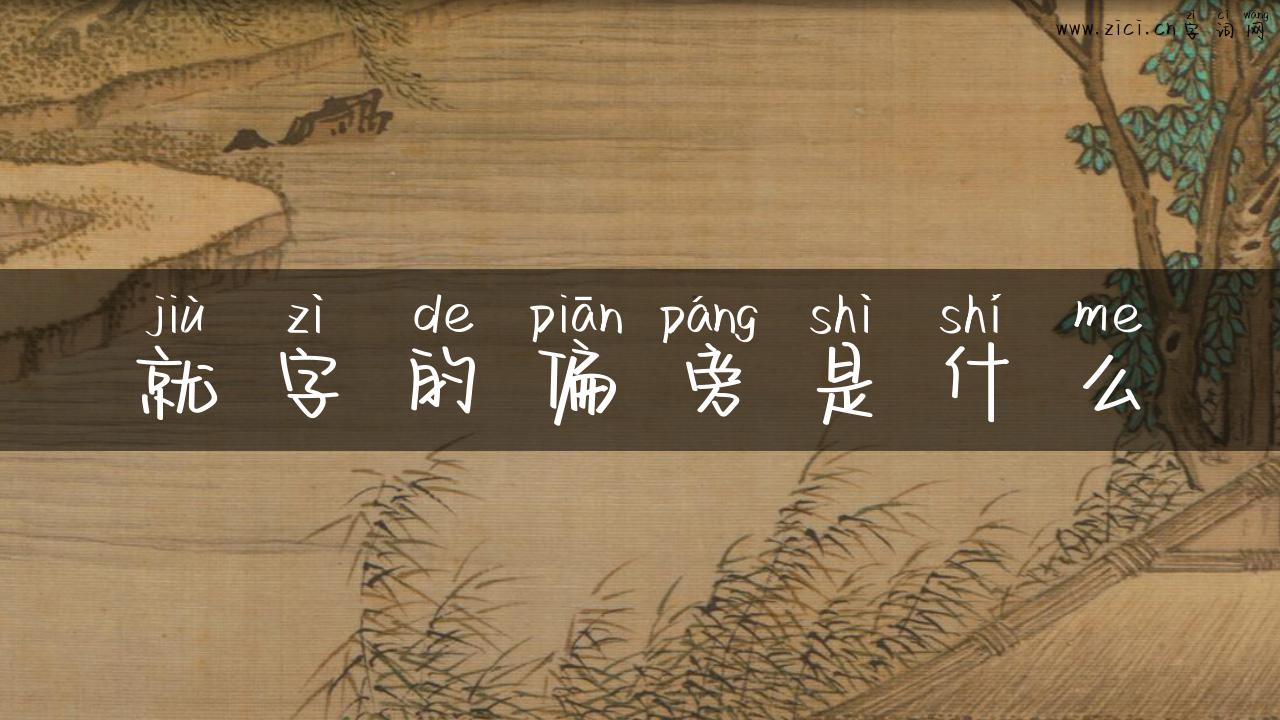 zì cí wǎng
www.zici.cn字词网
jiù zì de piān páng shì shí me
就字的偏旁是什么